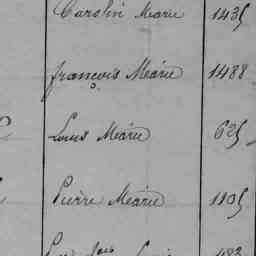 Carolin Marie 1435
françois Méarie 1488
Louis Méarie 625
Pierre Méarie 1105